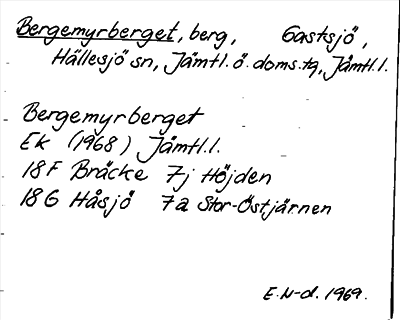 Bergemyrberget, berg, Gastsjö,
Hällesjö sn, Jämtl. ö. doms. tg, Jämtl. l.
Bergemyrberget
Ek (1968) Jämtl. l.
18F Bräcke 7j Höjden
18G Håsjö 7a Stor-Östjärnen
E. N-d. 1969.